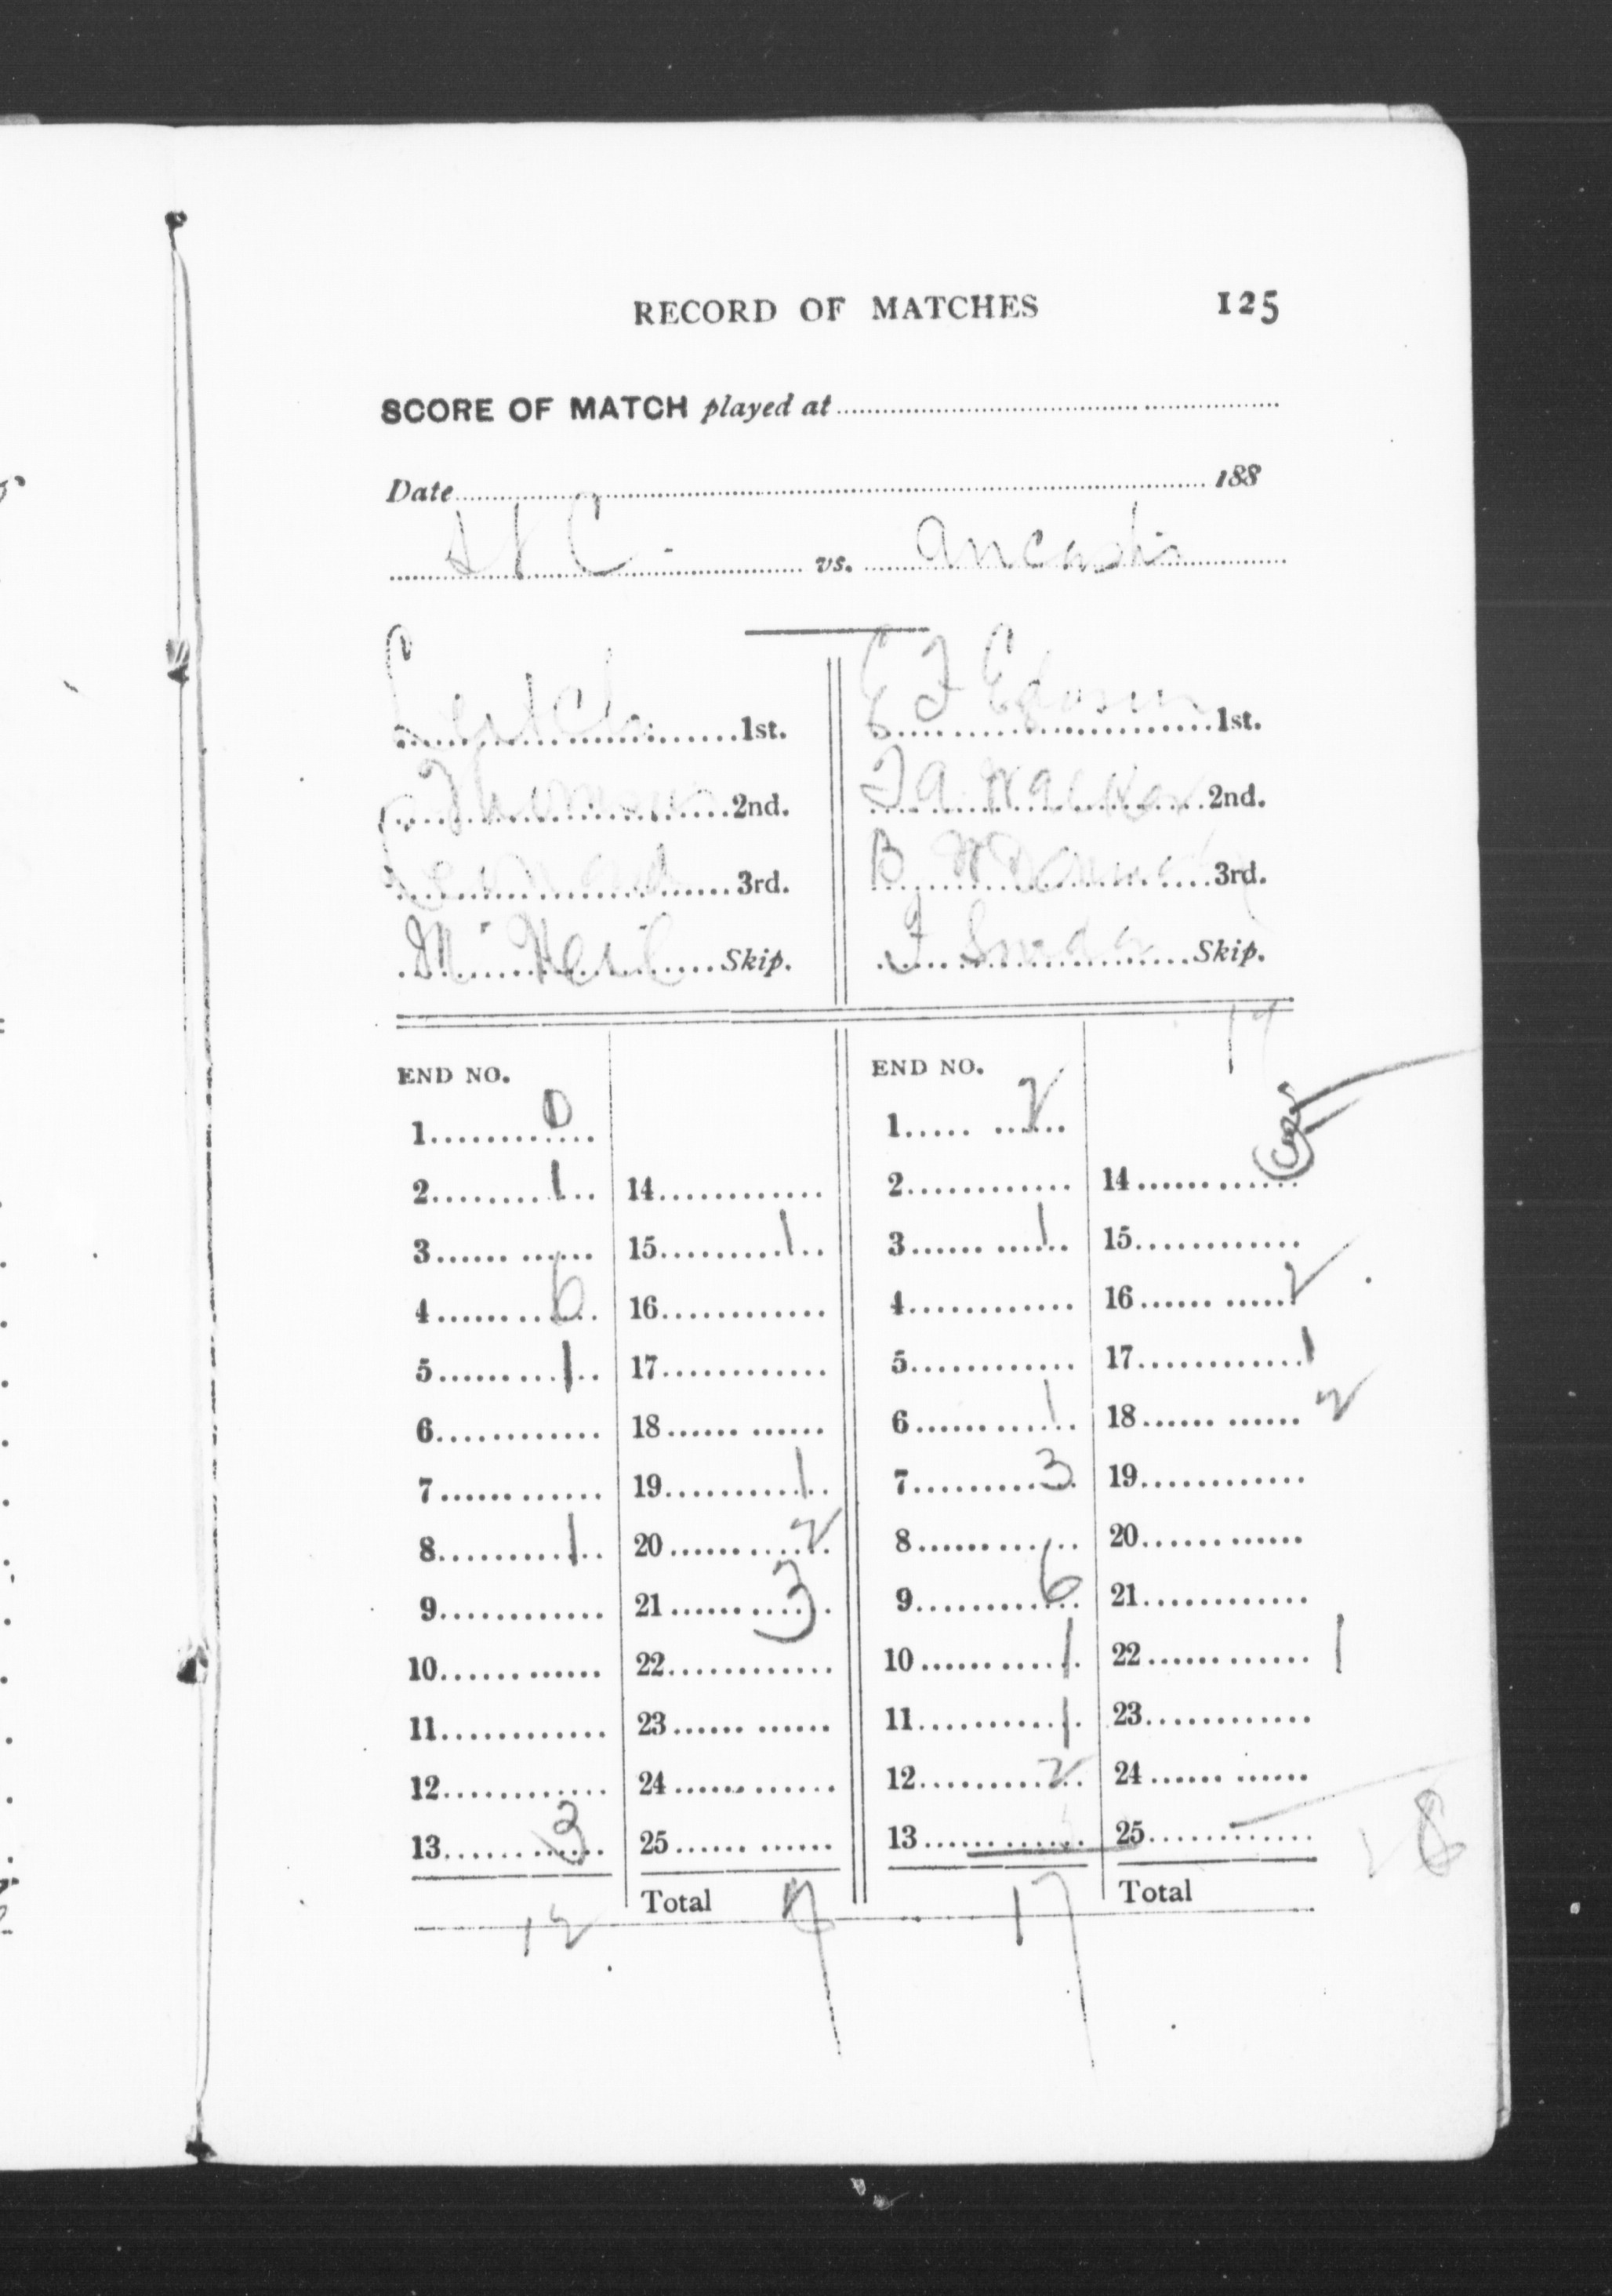 RECORD OF MATCHES 125
SCORE OF MATCH played at
Date 188
vs.
Leitch 1st.
E F 1st.
Thomson 2nd.
F A Walker 2nd.
3rd.
B 3rd.
McNeil Skip.
F Skip.
17
END NO.
1 0
2 1 14
3 15 1
4 6 16
5 1 17
6 18
7 19 1
8 1 20 2
9 21 3
10 22
11 23
12 24
13 3 25
12 Total 7
END NO.
1 2
2 14
3 1 15
4 16 2
5 17 1
6 1 18 2
7 3 19
8 20
9 6 21
10 1 22 1
11 1 23
12 2 24
13 25 8
17 Total